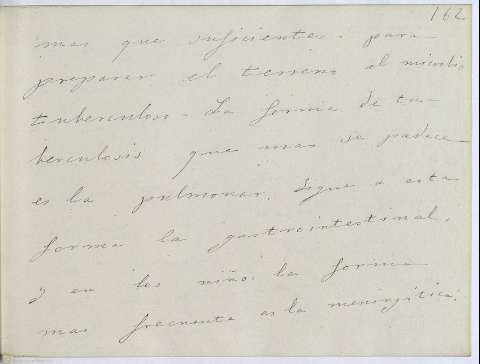 162
mas que suficientes para
preparar el terreno al microbio
tuberculoso. La forma de tu-
berculosis que mas se padece
es la pulmonar. Sigue a esta
forma la gastrointestinal,
y en los niños la forma
mas frecuente es la meningítica.